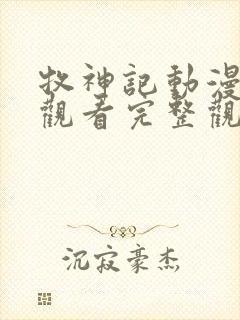 牧神記動漫
觀看完整觀
沉寂豪杰